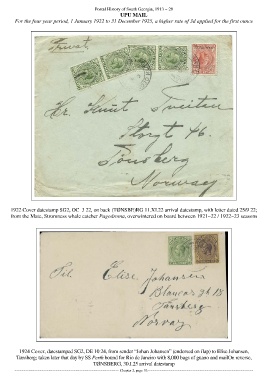 Postal History of South Georgia, 1911 – 28
UPU MAIL
For the four year period, 1 January 1922 to 31 December 1925, a higher rate of 3d applied for the first ounce
Privat
Hr. Knut Tveiten
Storgt 46.
Tönsberg
Norway
1922 Cover datestamp SG2, OC 2 22, on back (TØNSBERG 11.XI.22 arrival datestamp, with letter dated 25/9 22;
from the Mate, Stromness whale catcher overwintered on board between 1921–22 / 1922–23 seasons
Til Elise Johansen
Tønsberg
Norway
1924 Cover, datestamped SG2, DE 10 24, from sender "Johan Johansen" (endorsed on flap) to Elise Johansen,
Tønsberg; taken later that day by SS bound for Rio de Janeiro with 8,000 bags of guano and mail. On reverse,
TØNSBERG, 30.1.25 arrival datestamp